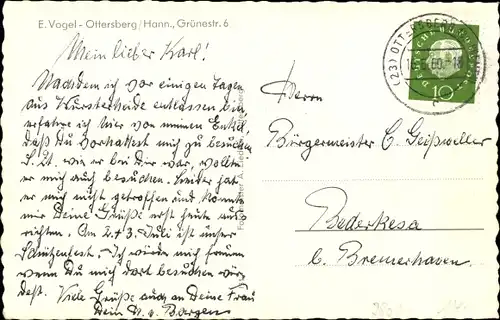 E. Vogel - Ottersberg/Hann., Grünestr. 6
Mein lieber Karl!
Nachdem ich vor einigen Tagen
aus entlassen bin
erfahre ich hier von meinem Enkel,
daß Du vorhattest mich zu besuchen
S. Zt. wie er bei Dir war, wollten
er mich auch besuchen. Leider hat
er mich nicht getroffen und konnte
mir Deine Grüße erst heute aus-
richten. Am 2. + 3. Juli ist unser
Schützenfest. Ich würde mich freuen
wenn Du mich dort besuchen wür-
dest. Viele Grüße auch an Deine Frau
Dein v. Bargen
(23) OTTERSBERG
DEUTSCHE BUNDESPOST
10
Herrn
Bürgermeister C. Geißweller
Bederkesa
b. Bremerhaven.